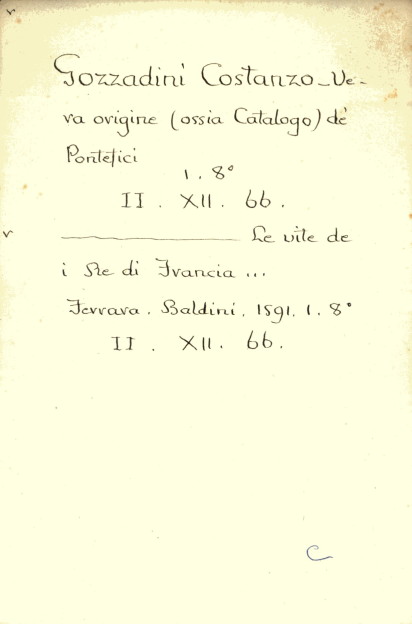 v
Gozzadini Costanzo_Ve-
ra origine (ossia Catalogo) de'
Pontefici
1. 8°
II . XII . 66 .
v ———— Le vite de
i Re di Francia ...
Ferrara . Baldini . 1591. 1. 8°
II . XII . 66 .
C